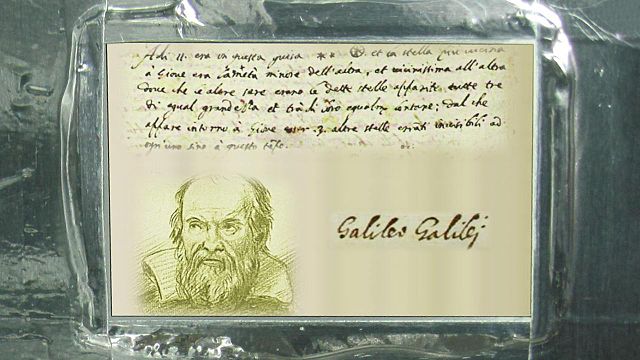 Adi 11. era in questa guisa ** et la stella più vicina
à Giove era la metà minore dell'altra, et vicinissima all'altra
dove che le altre sere erano le dette stelle apparite tutte tre
di egual grandezza et trà di loro egualm. lontane; dal che
appare intorno à Giove esser 3. altre stelle erranti invisibili ad
ogn'uno sino à questo tempo.
Galileo Galilej